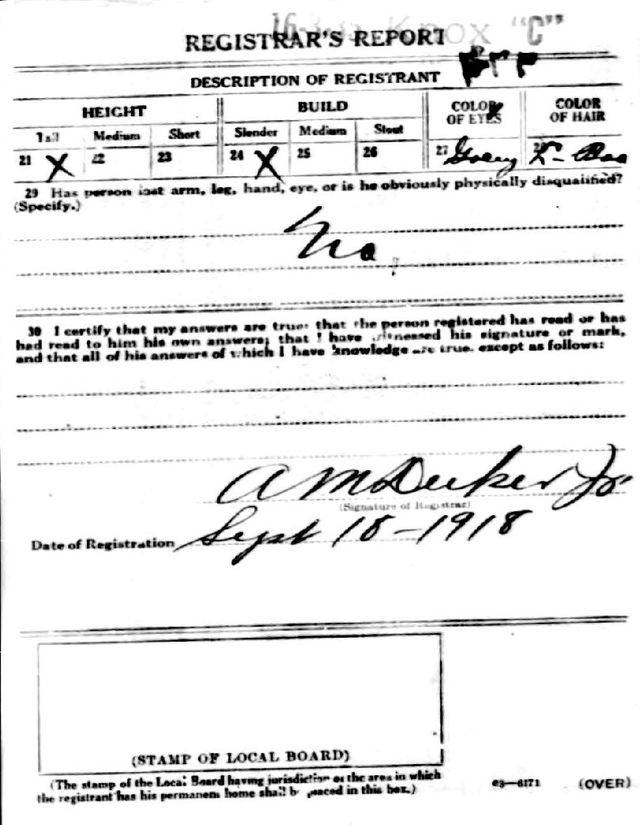 16-3- Knox "C"
REGISTRAR'S REPORT
DESCRIPTION OF REGISTRANT
HEIGHT BUILD COLOR OF EYES COLOR OF HAIR
Tall Medium Short Slender Medium Stout
21 X 22 23 24 X 25 26 27 Grey 28
29 Has person lost arm, leg, hand, eye, or is he obviously physically disqualified?
(Specify.)
No.
30 I certify that my answers are true; that the person registered has read or has
had read to him his own answers; that I have witnessed his signature or mark,
and that all of his answers of which I have knowledge are true, except as follows:
A M Decker Jr.
(Signature of Registrar)
Date of Registration Sept 18-1918
(STAMP OF LOCAL BOARD)
(The stamp of the Local Board having jurisdiction of the area in which
the registrant has his permanent home shall be placed in this box.)
03-6171 (OVER)